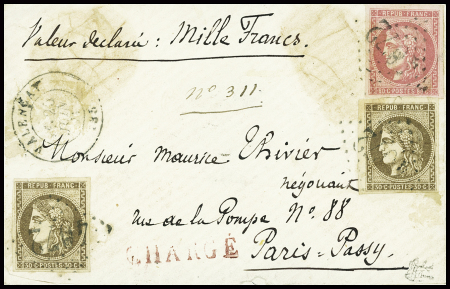 Valeur déclarée : Mille Francs.
REPUB. FRANC.
80 C. POSTES 80 C.
VALENÇAY
n° 311.
REPUB. FRANC.
30 C. POSTES 30 C.
Monsieur Maurice Thivier
négociant
rue de la Pompe N°. 88
REPUB. FRANC.
30 C. POSTES 30 C.
CHARGÉ
Paris-Passy.